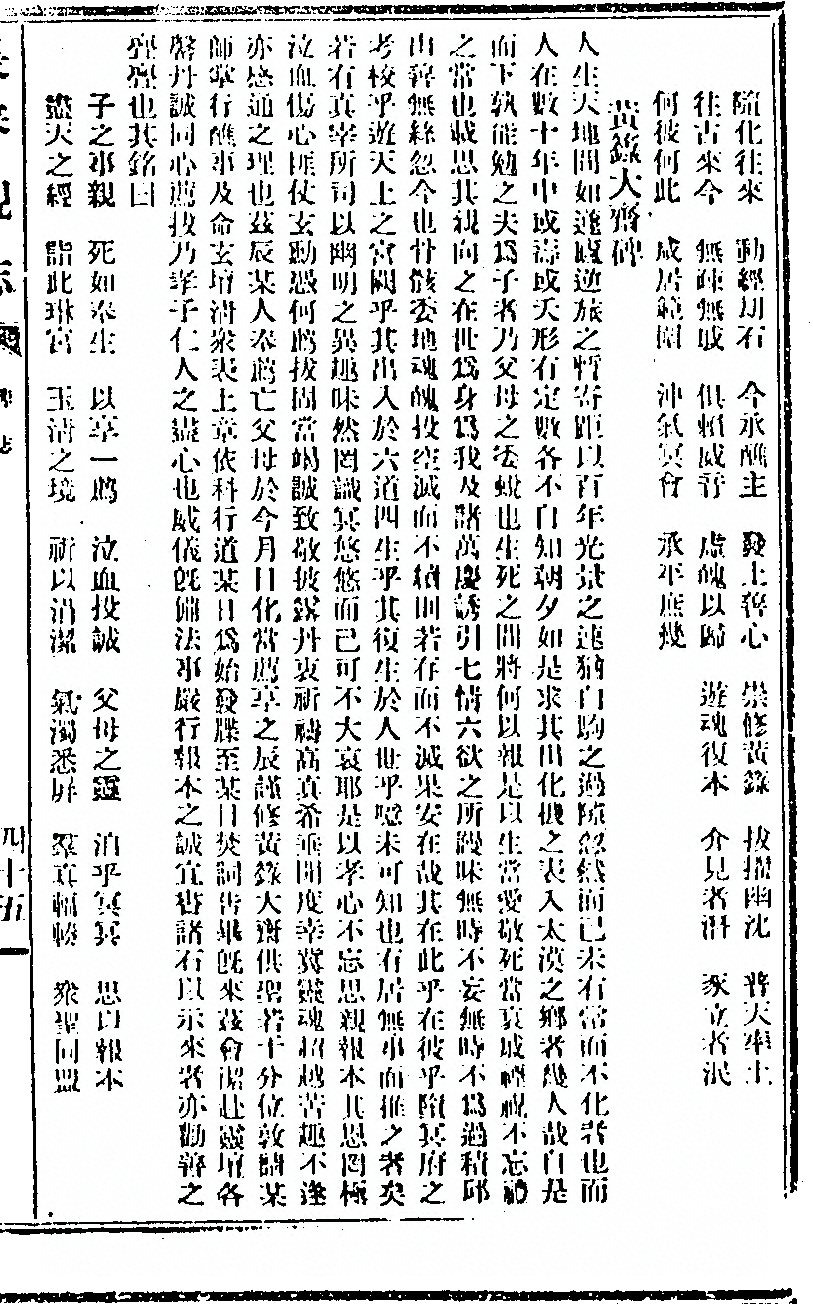 隨化往來 勒經刋石 今承醮主 發上善心 崇修黃籙 拔擢幽沈 普天率土
往古來今 無疎無戚 俱賴威音 虛魄以歸 遊魂復本 介見者潛 豕立者泯
何彼何此 咸居範圍 沖氣冥會 承平庶幾
黃籙大齋碑
人生天地間如蘧廬逆旅之暫寄距以百年光景之速猶白駒之過隙忽然而已未有常而不化者也而
人在數十年中或壽或夭形有定數各不自知朝夕如是求其出化機之表入太漠之鄉者幾人哉自是
而下孰能勉之夫爲子者乃父母之委蛻也生死之間將何以報是以生當愛敬死當哀戚禋祀不忘禮
之常也載思其親向之在世爲身爲我及諸萬慶誘引七情六欲之所縵昧無時不妄無時不爲過積邱
山善無絲忽今也骨骸委地魂魄投空滅而不續則若存而不滅果安在哉其在此乎在彼乎隨冥府之
考校乎遊天上之宮闕乎其出入於六道四生乎其復生於人世乎噫未可知也有居無事而推之者矣
若有真宰所司以幽明之異趣昧然罔識冥悠悠而已可不大哀耶是以孝心不忘思親報本其恩罔極
泣血傷心匪仗玄勳憑何薦拔固當竭誠致敬披露丹衷祈禱高真希垂開度幸冀靈魂招越苦趣不逢
亦感通之理也茲辰某人奉薦亡父母於今月日化當薦享之辰謹修黃籙大齋供聖若干分位敦請某
師掌行醮事及命玄壇清衆表上章依科行道某日爲始發牒至某日焚詞告畢旣來茲會潔赴靈壇各
罄丹誠同心薦拔乃孝子仁人之盡心也威儀旣備法事嚴行報本之誠宜書諸石以示來者亦勸善之
亹亹也其銘曰
子之事親 死如奉生 以享一薦 泣血投誠 父母之靈 泊乎冥冥 思以報本
盡天之經 詣此琳宮 玉清之境 祈以清潔 氣濁悉屛 羣真輻輳 衆聖同盟
四十五